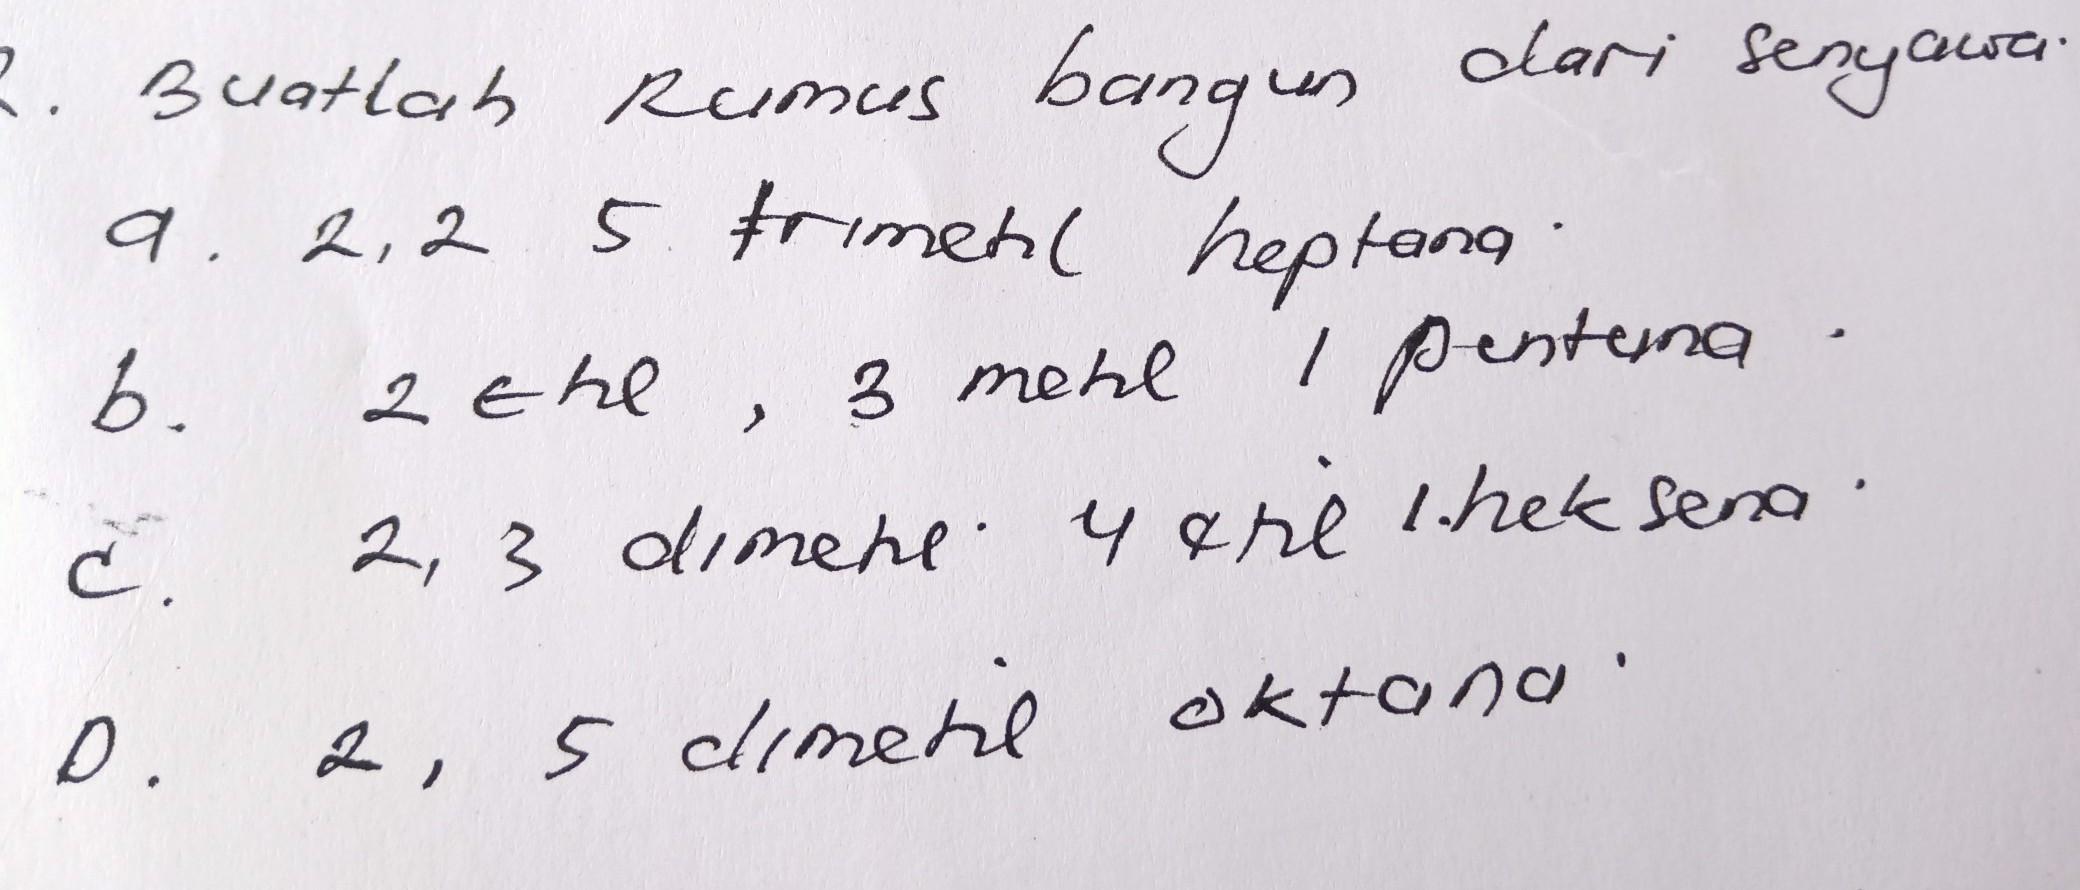 2. Buatlah Rumus bangun dari senyawa.
a. 2,2 5. trimetil heptana.
b. 2 Etil, 3 metil 1 pentena.
c. 2, 3 dimetil. 4 etil 1.heksena.
D. 2, 5 dimetil oktana.